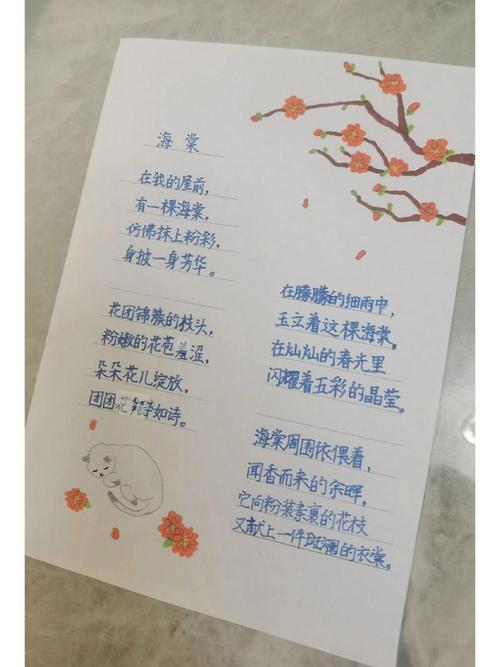 海棠
在我的屋前，
有一棵海棠，
仿佛抹上粉彩，
身披一身芳华。
花团锦簇的枝头，
粉嫩的花苞羞涩，
朵朵花儿绽放，
团团花 如诗。
在朦朦的细雨中，
玉立着这棵海棠，
在灿灿的春光里
闪耀着五彩的晶莹。
海棠周围依偎着，
闻香而来的余晖，
它向粉装素裹的花枝
又献上一件斑斓的衣裳。